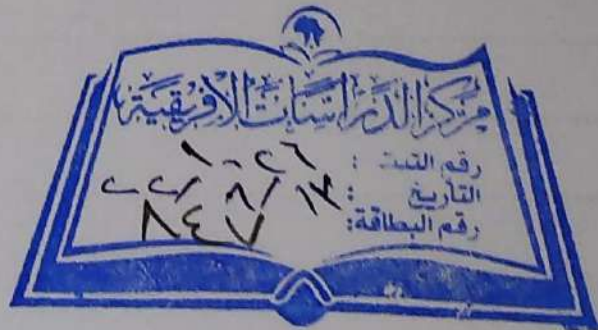 مركز الدراسات الإفريقية
رقم الثبت : ١٠٢٦
التاريخ : ١٣/ ٨/
رقم البطاقة: ٨٤٧